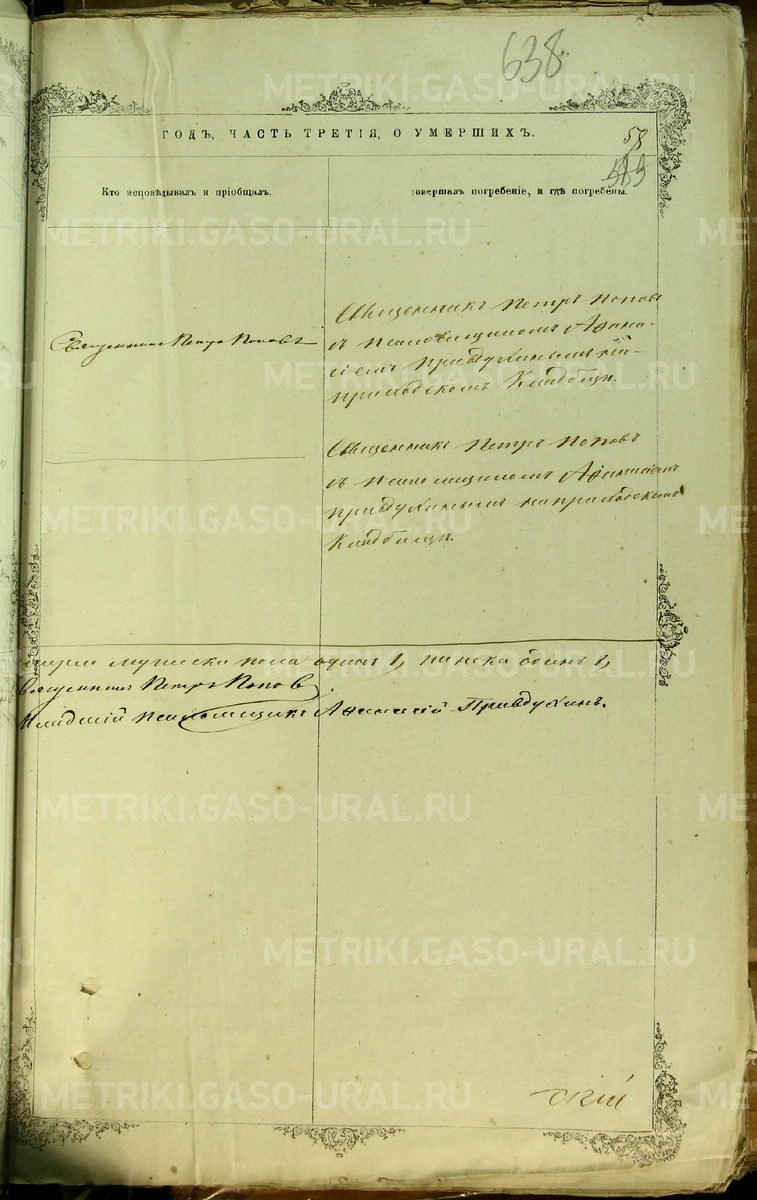 638
ГОДЪ, ЧАСТЬ ТРЕТІЯ, О УМЕРШИХЪ.
58
Кто исповѣдывалъ и пріобщалъ.
совершалъ погребеніе, и гдѣ погребены.
Священникъ Петръ Поповъ
Священникъ Петръ Поповъ
съ псаломщикомъ Афана-
сіемъ Правдухинымъ на
приходскомъ Кладбищѣ.
Священникъ Петръ Поповъ
съ псаломщикомъ Афанасіемъ
Правдухинымъ на приходскомъ
Кладбищѣ.
мужеска пола одинъ 1, женска одинъ 1,
Священникъ Петръ Поповъ
Младшій псаломщикъ Афанасій Правдухинъ.
скій
METRIKI.GASO-URAL.RU